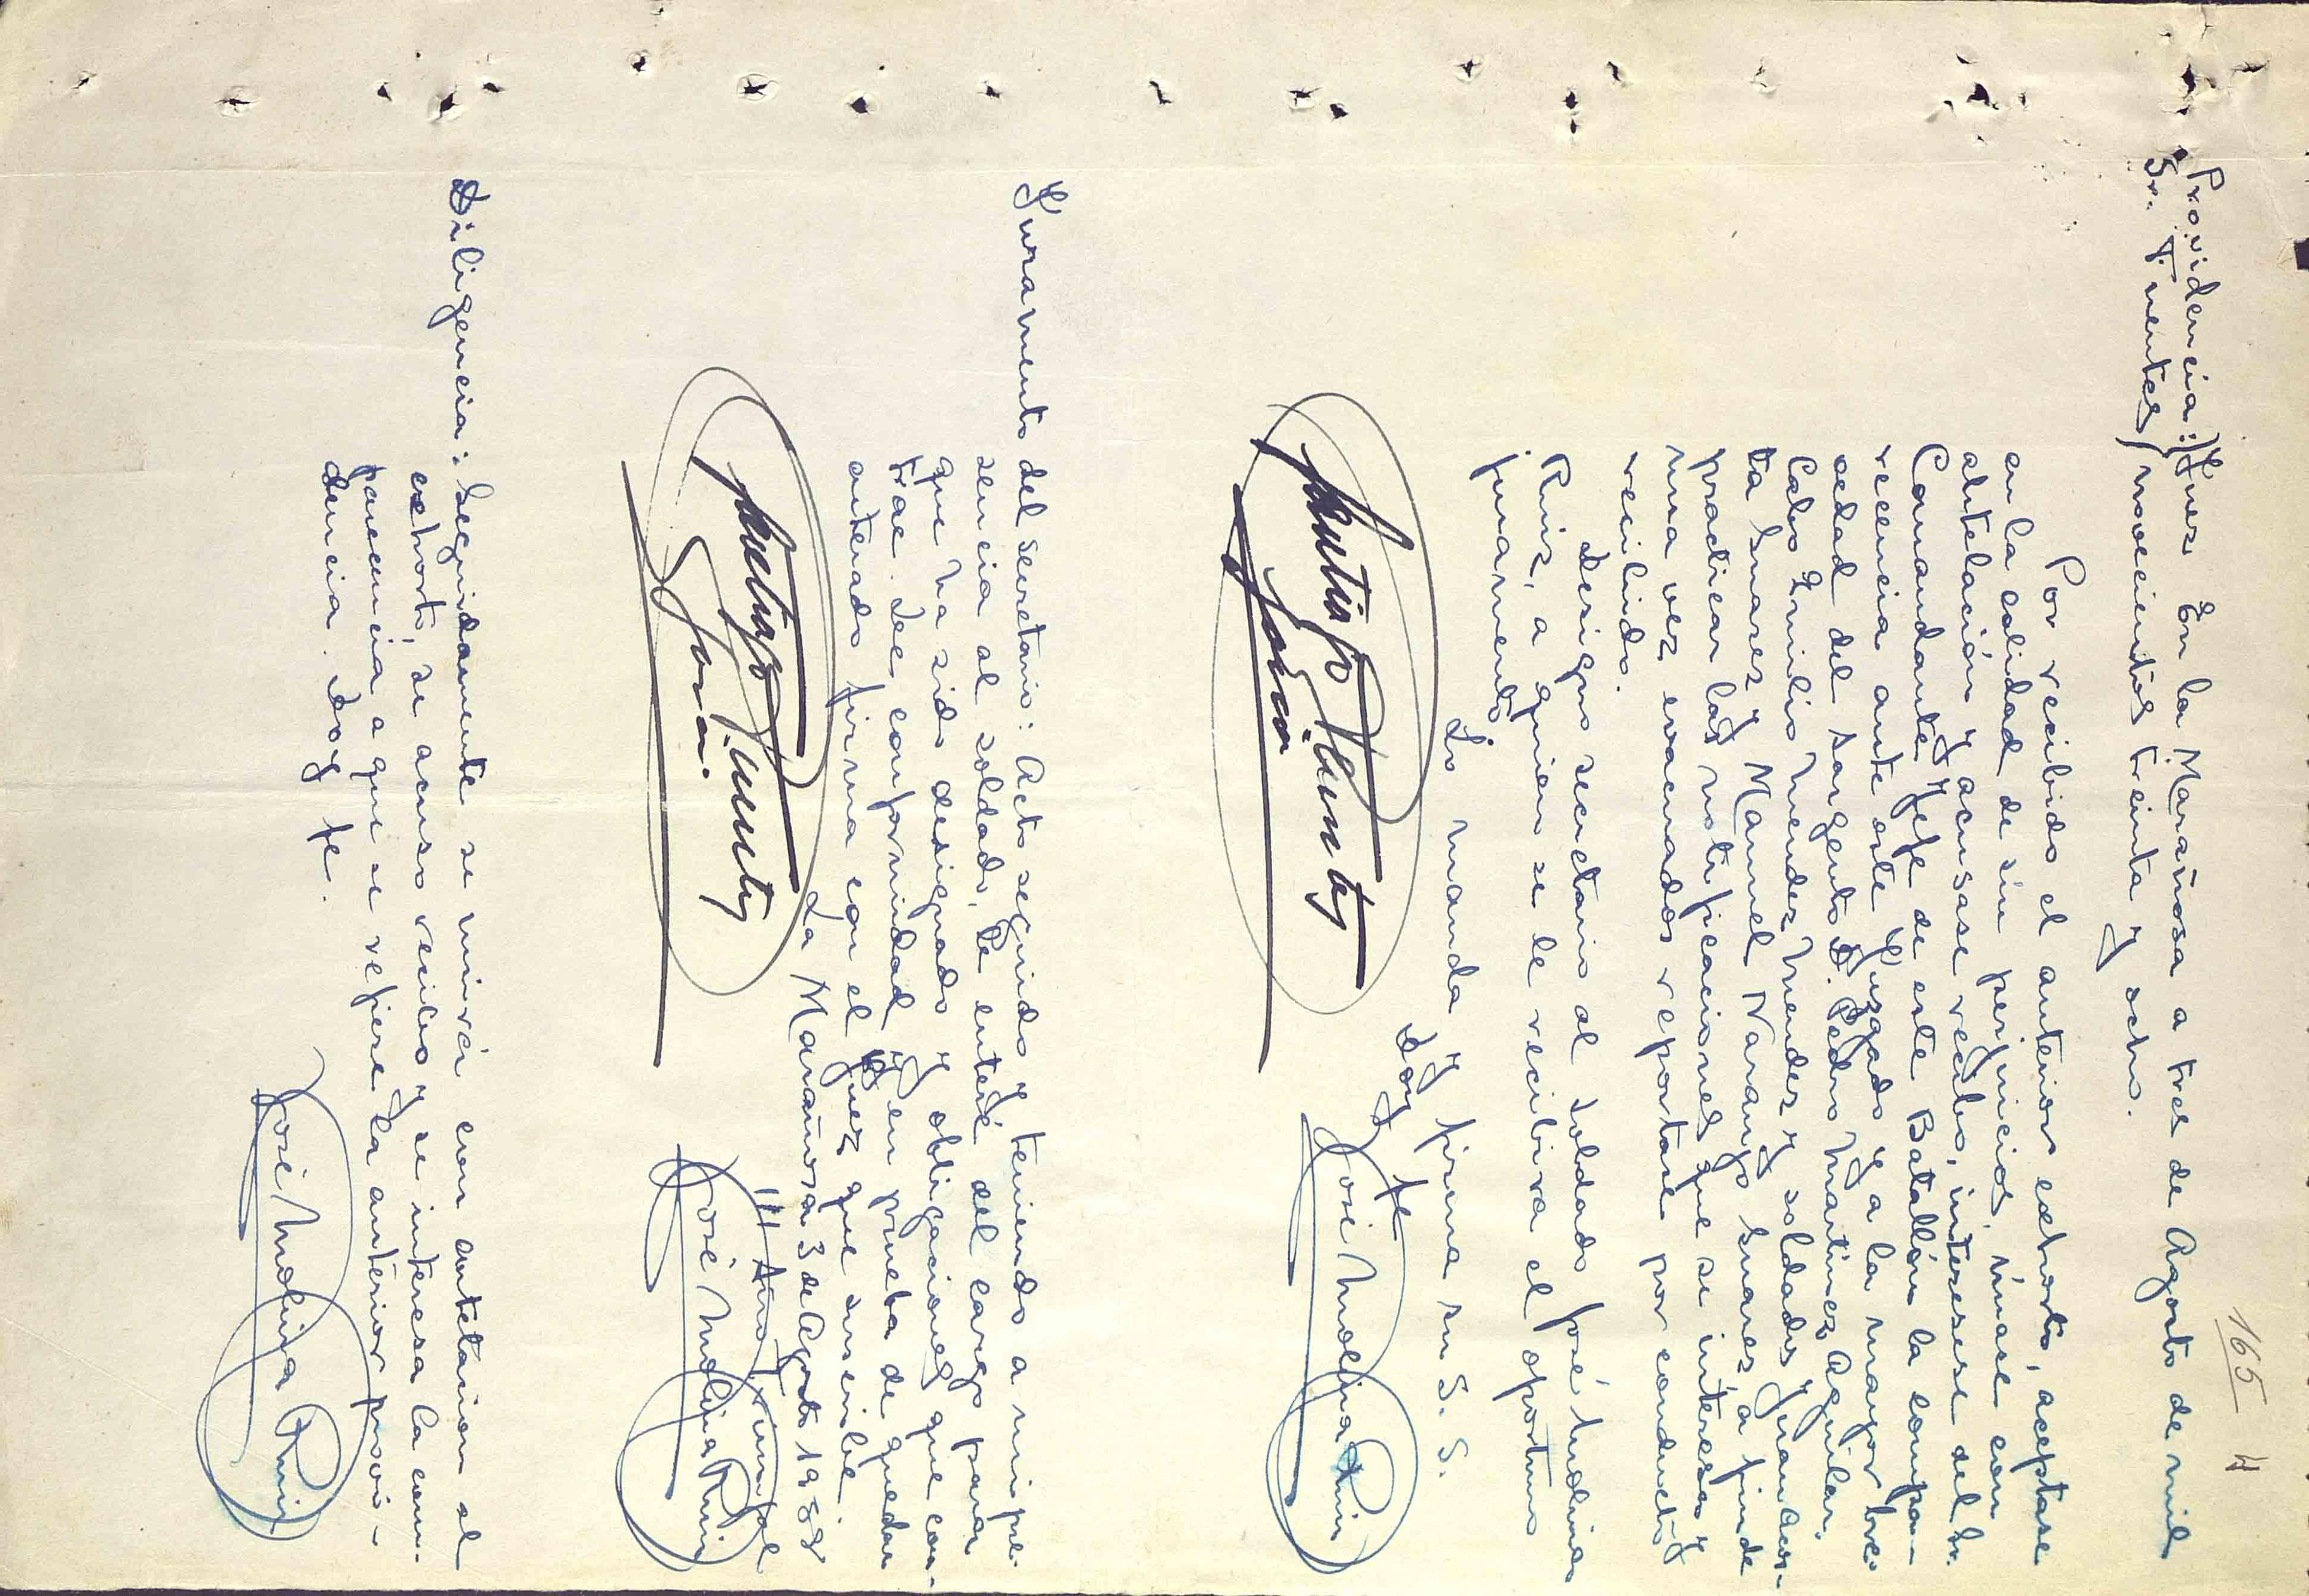 165 4
Providencia: Juez En la Marañosa a tres de Agosto de mil
Sr. Fuentes novecientos treinta y ocho.
Por recibido el anterior exhorto, aceptase
en la calidad de sin perjuicios, únase con
antelación y acusase recibo, interesese del Sr.
Comandante Jefe de este Batallón la compa-
recencia ante este Juzgado y a la mayor bre-
vedad del sargento D. Pedro Martínez Aguilar,
Cabo Emilio Mendez Mendez y soldados Juan Acos-
ta Suarez y Manuel Naranjo Suarez, a fin de
practicar las notificaciones que se interesa y
una vez evacuados reportase por conducto
recibido.
Designo secretario al soldado José Molina
Ruiz, a quien se le recibira el oportuno
juramento.
Lo manda y firma su S. S.
Doy fe
Santiago Fuentes
Soria
José Molina Ruiz
Juramento del secretario: Acto seguido y teniendo a mi pre-
sencia al soldado, le enteré del cargo para
que ha sido designado y obligaciones que con-
trae. Lee, conformidad y en prueba de quedar
enterado firma con el Juez que suscribe.
La Marañosa 3 de Agosto 1938
II Año Triunfal
Santiago Fuentes
Soria.
José Molina Ruiz
Diligencia: Seguidamente se unirá con antelacion al
exhorto, se acuso recibo y se interesa la com-
parecencia a que se refiere la anterior provi-
dencia. Doy fe.
José Molina Ruiz